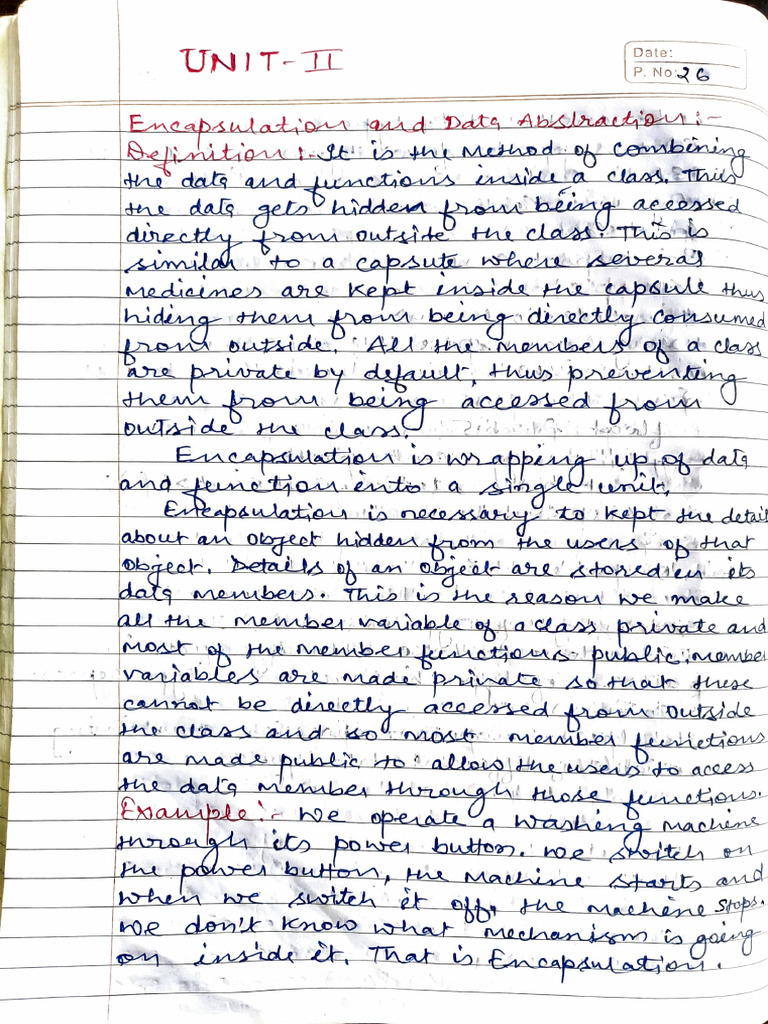 UNIT-II
Date:
P. No: 26
Encapsulation and Data Abstraction:-
Definition:- It is the Method of combining
the data and functions inside a class. Thus
the data gets hidden from being accessed
directly from outside the class. This is
similar to a capsute where several
medicines are kept inside the capsule thus
hiding them from being directly consumed
from outside. All the members of a class
are private by default, thus preventing
them from being accessed from
outside the class.
Encapsulation is wrapping up of data
and function into a single unit.
Encapsulation is necessary to kept the detail
about an object hidden from the users of that
object. Details of an object are stored in its
data members. This is the reason we make
all the member variable of a class private and
most of the member functions public. member
variables are made private so that these
cannot be directly accessed from outside
the class and so most member functions
are made public to allow the users to access
the data member through those functions.
Example:- We operate a washing machine
through its power button. We switch on
the power button, the machine starts and
when we switch it off, the machine stops.
We don't know what mechanism is going
on inside it. That is Encapsulation.